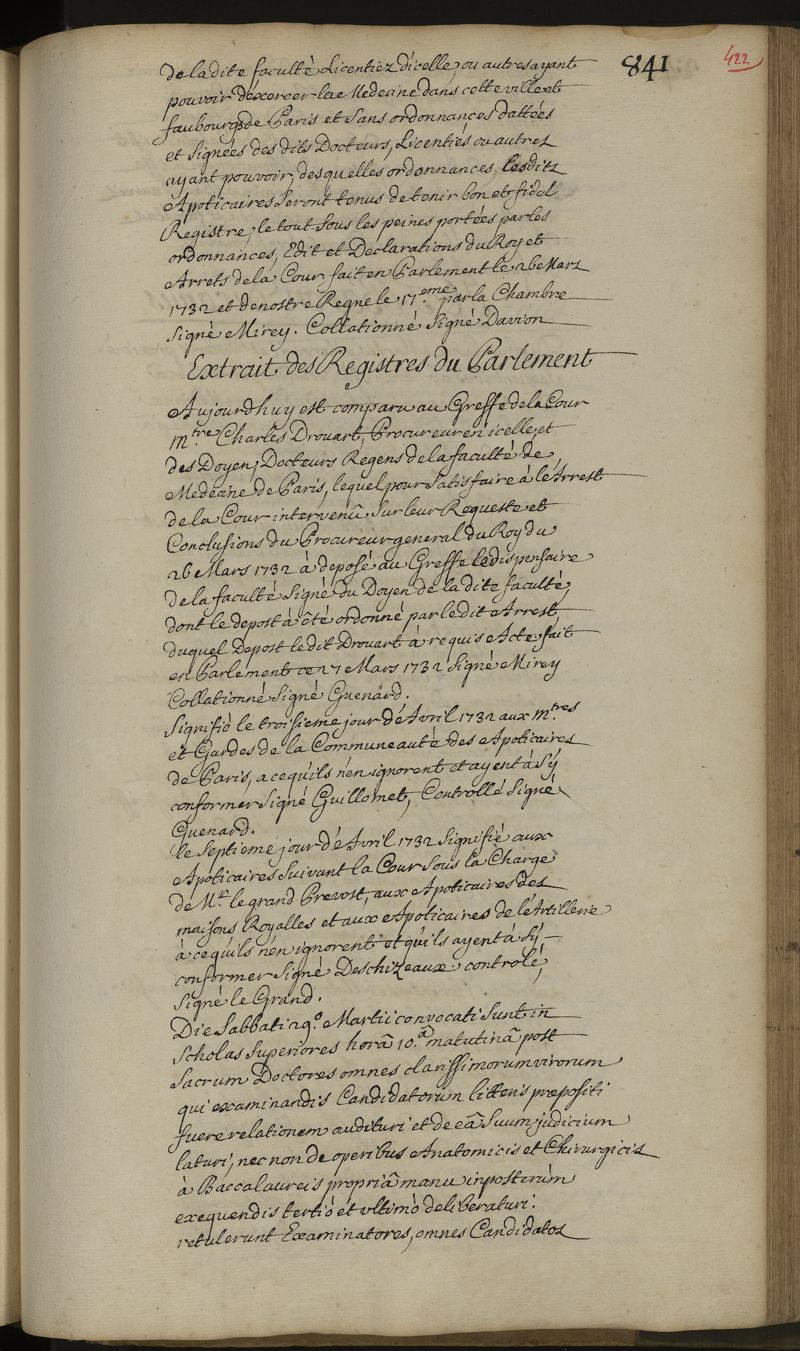 841
422
de la dite faculté Licentiez d'icelle, ou autres ayant
pouvoir d'exercer la Medecine dans cette ville et
faubourgs de Paris et Sans ordonnances dattées
et Signées des dits Docteurs, Licentiés ou autres
ayant pouvoir, desquelles ordonnances, lesdits
Apoticaires Seront tenus de tenir bon et fidel
Registre, le tout Sous les peines portées par les
ordonnances, Edit et Declarations du Roy et
Arrets de la Cour fait en Parlement le 26 Mars
1732 et de nostre Regne le 17.eme par la Chambre
Signé Mirey. Collationné Signé Davion
Extrait des Registres du Parlement
Aujourdhuy est comparu au Greffe de la Cour
M.tre Charles Drouart, Procureur en icelle, et
des Doyen, Docteurs Régens de la faculté de
Medecine de Paris, lequel pour Satisfaire à l'Arrest
de la Cour intervenû Sur leur Requeste et
Conclusions du Procureur general du Roy du
26 Mars 1732 à deposé au Greffe le dispensaire
de la faculté Signé du Doyen de la dite faculté,
dont le depost à êté ordonné par le dit Arrest
duquel Depost le dit Drouart à requis Acte fait
en Parlement ce 27 Mars 1732 Signé Mirey
Collationné Signé Guenard.
Signifié le troisieme jour d'Avril 1732 aux M.tres
et Gardes de la Communeauté des Apoticaires
de Paris, a ce qu'ils n'en ignorent et ayent à S'y
conformer Signé Guillomet, Controllé Signé
Guenard.
le Septieme jour d'Avril 1732 Signifié aux
Apoticaires Suivant la Cour Sous la Charge
de M.r le grand Prevost, aux Apoticaires des
maisons Royalles et aux Apoticaires de l'Artillerie
à ce qu'ils n'en ignorent et qu'ils ayent à S'y
conformer Signé Deschizeaux controlé,
Signé le Grand.
Die Sabbati 29.° Martii convocati Sunt in
Scholas Superiores horâ 10.a matutinâ post
Sacrum Doctores omnes clarissimorum virorum
qui examinandis Candidatorum litteris prepositi
fuere relationem audituri et de eâ Suum judicium
laturi, nec non de operibus Anatomicis et Chirurgicis
à Baccalaureis propriâ manu inposterùm
exequendis tertiò et ultimò deliberaturi.
retulerunt Examinatores, omnes Candidatos